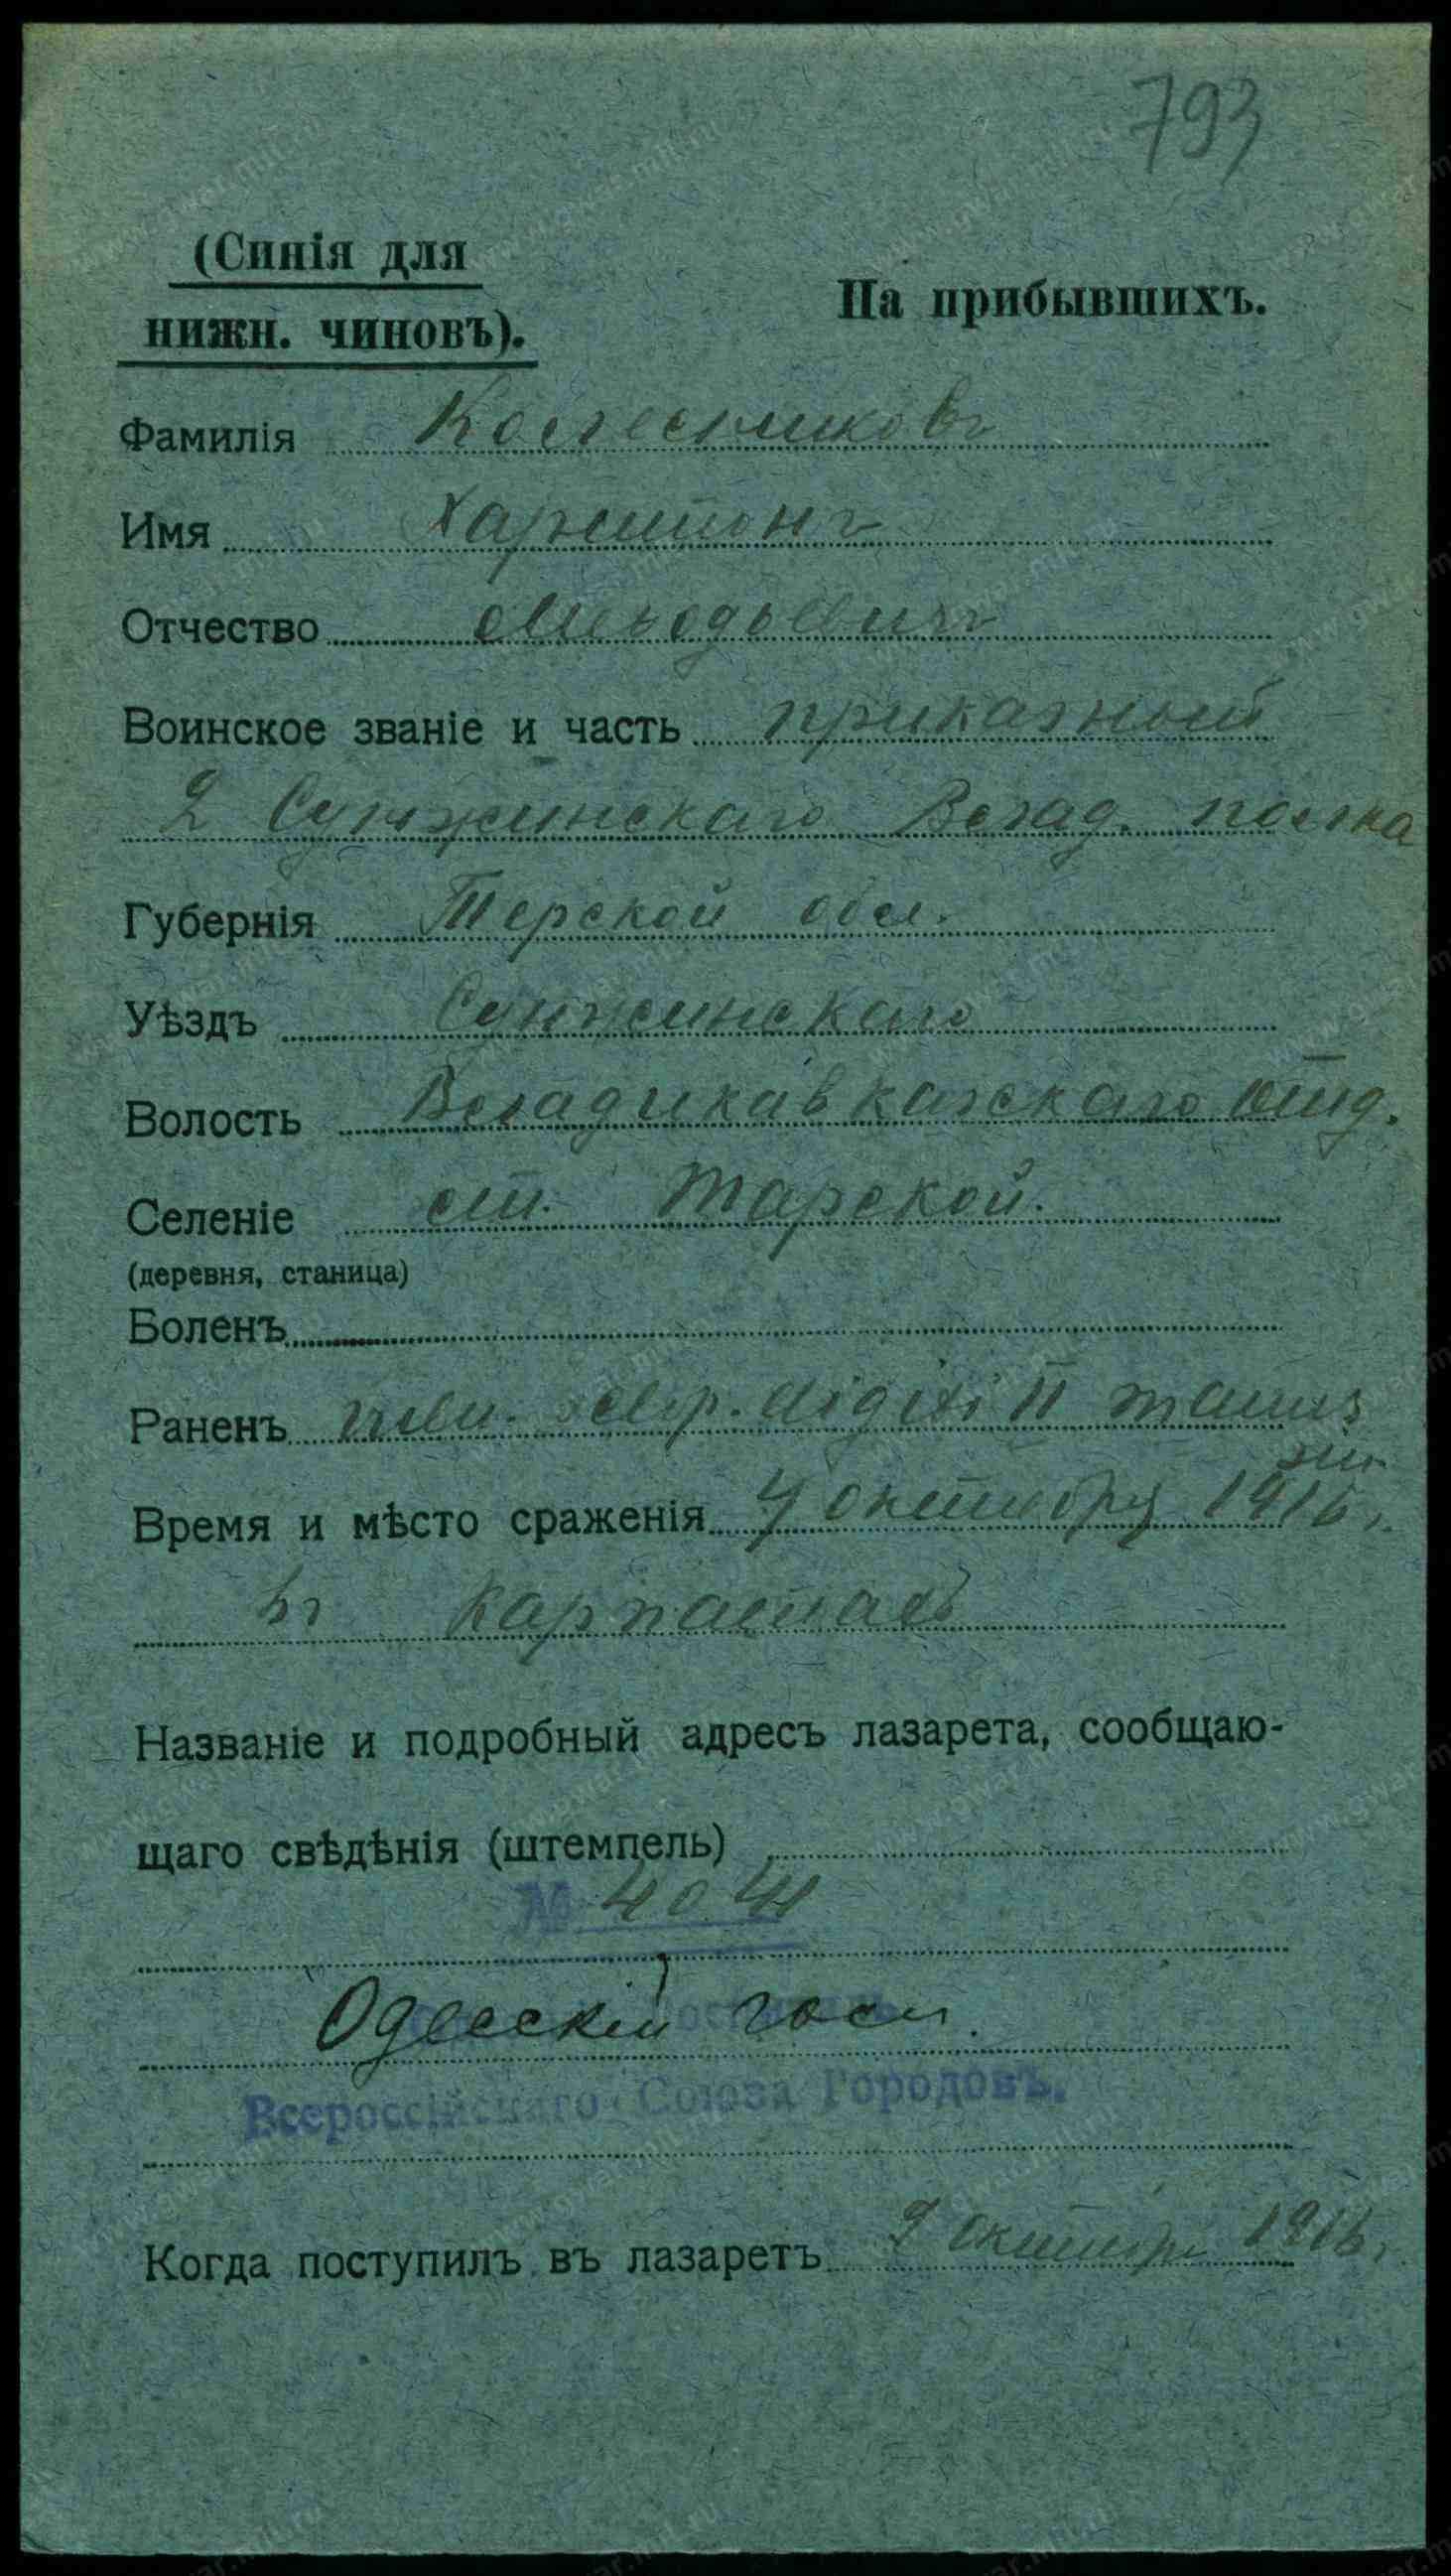 793
(Синія для
нижн. чиновъ).
На прибывшихъ.
Фамилія Колесниковъ
Имя Харитонъ
Отчество
Воинское званіе и часть приказный
2 Сунженскаго Влад. полка
Губернія Терской обл.
Уѣздъ Сунженскаго
Волость Владикавказскаго отд.
Селеніе ст. Тарской.
(деревня, станица)
Боленъ
Раненъ vuln. sclop. digiti II manus
sin.
Время и мѣсто сраженія 4 октября 1916 г.
въ Карпатахъ
Названіе и подробный адресъ лазарета, сообщаю-
щаго свѣдѣнія (штемпель)
№ 4041
Одесскій госп.
Всероссійскаго Союза Городовъ.
Когда поступилъ въ лазаретъ 9 октября 1916 г.